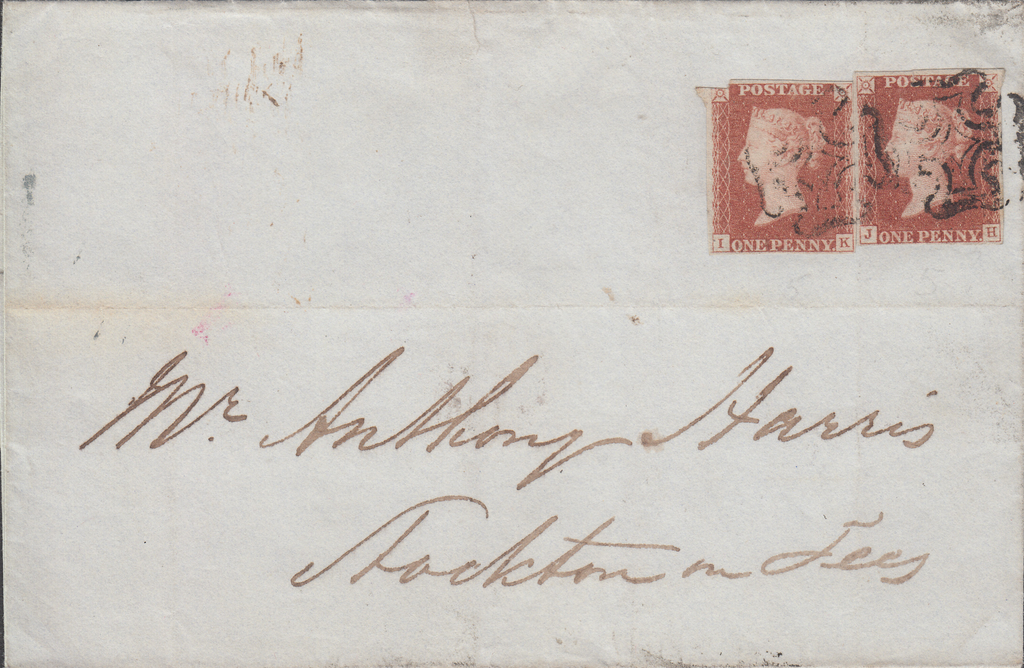 POSTAGE POSTAGE
I ONE PENNY. K J ONE PENNY. H
Mr. Anthony Harris
Stockton on Tees